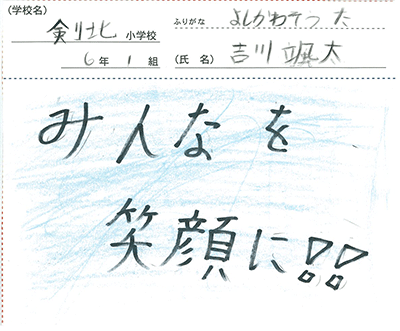 (学校名) 剣北 小学校
6年 1 組
ふりがな よしかわそう た
(氏 名) 吉川 颯太
みんなを
笑顔に!!